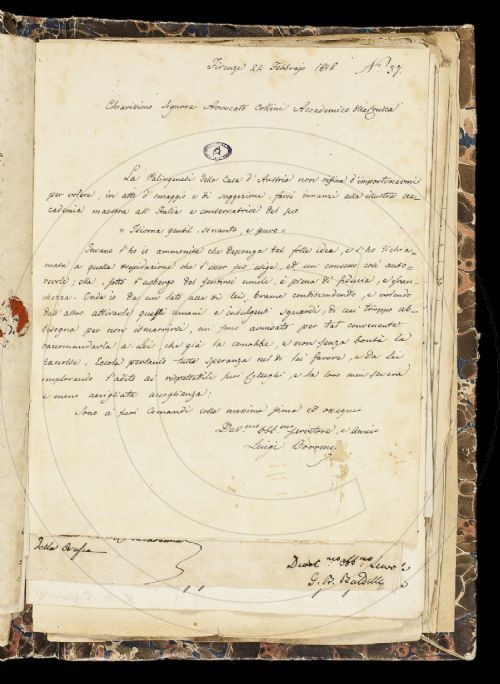 Firenze 22 Febbrajo 1818 N° 37.
Chiarissimo Signore Avvocato Collini Accademico della Crusca
La Palingenesi della Casa d'Austria non rifina d'importunarmi
per volere, in atto d'omaggio e di suggezione, farsi innanzi alla illustre Ac-
cademia maestra all'Italia e conservatrice del suo
" Idioma gentil, sonante, e puro "
Invano l'ho io ammonita che deponga tal folle idea, e l'ho richia-
mata a quella trepidazione che l'esser suo esige, ed un consesso così auto-
revole; ella, sotto l'usbergo del sentirsi umile, è piena di fiducia, e fran-
chezza. Onde io da un lato a lei, brama condiscendendo, e volendo
dall'altro attirarle quegli umani e indulgenti sguardi, di cui troppo ab-
bisogna per non ismarrirsi, mi sono avvisato per tal convenente
raccomandarla a Lei che già la conobbe, e non senza bontà la
accolse. Loco pertanto tutta speranza nel di lei favore, e da Lei
implorando l'adito ai rispettabili suoi Colleghi, e la loro men severa
e meno accigliata accoglienza;
Sono ai suoi comandi colla massima stima ed ossequio
Dev.mo Obb.mo Servitore, e Amico
Luigi Borrini
Della Crusca
Devot.mo Obb.mo Servo
G. B. Baldelli